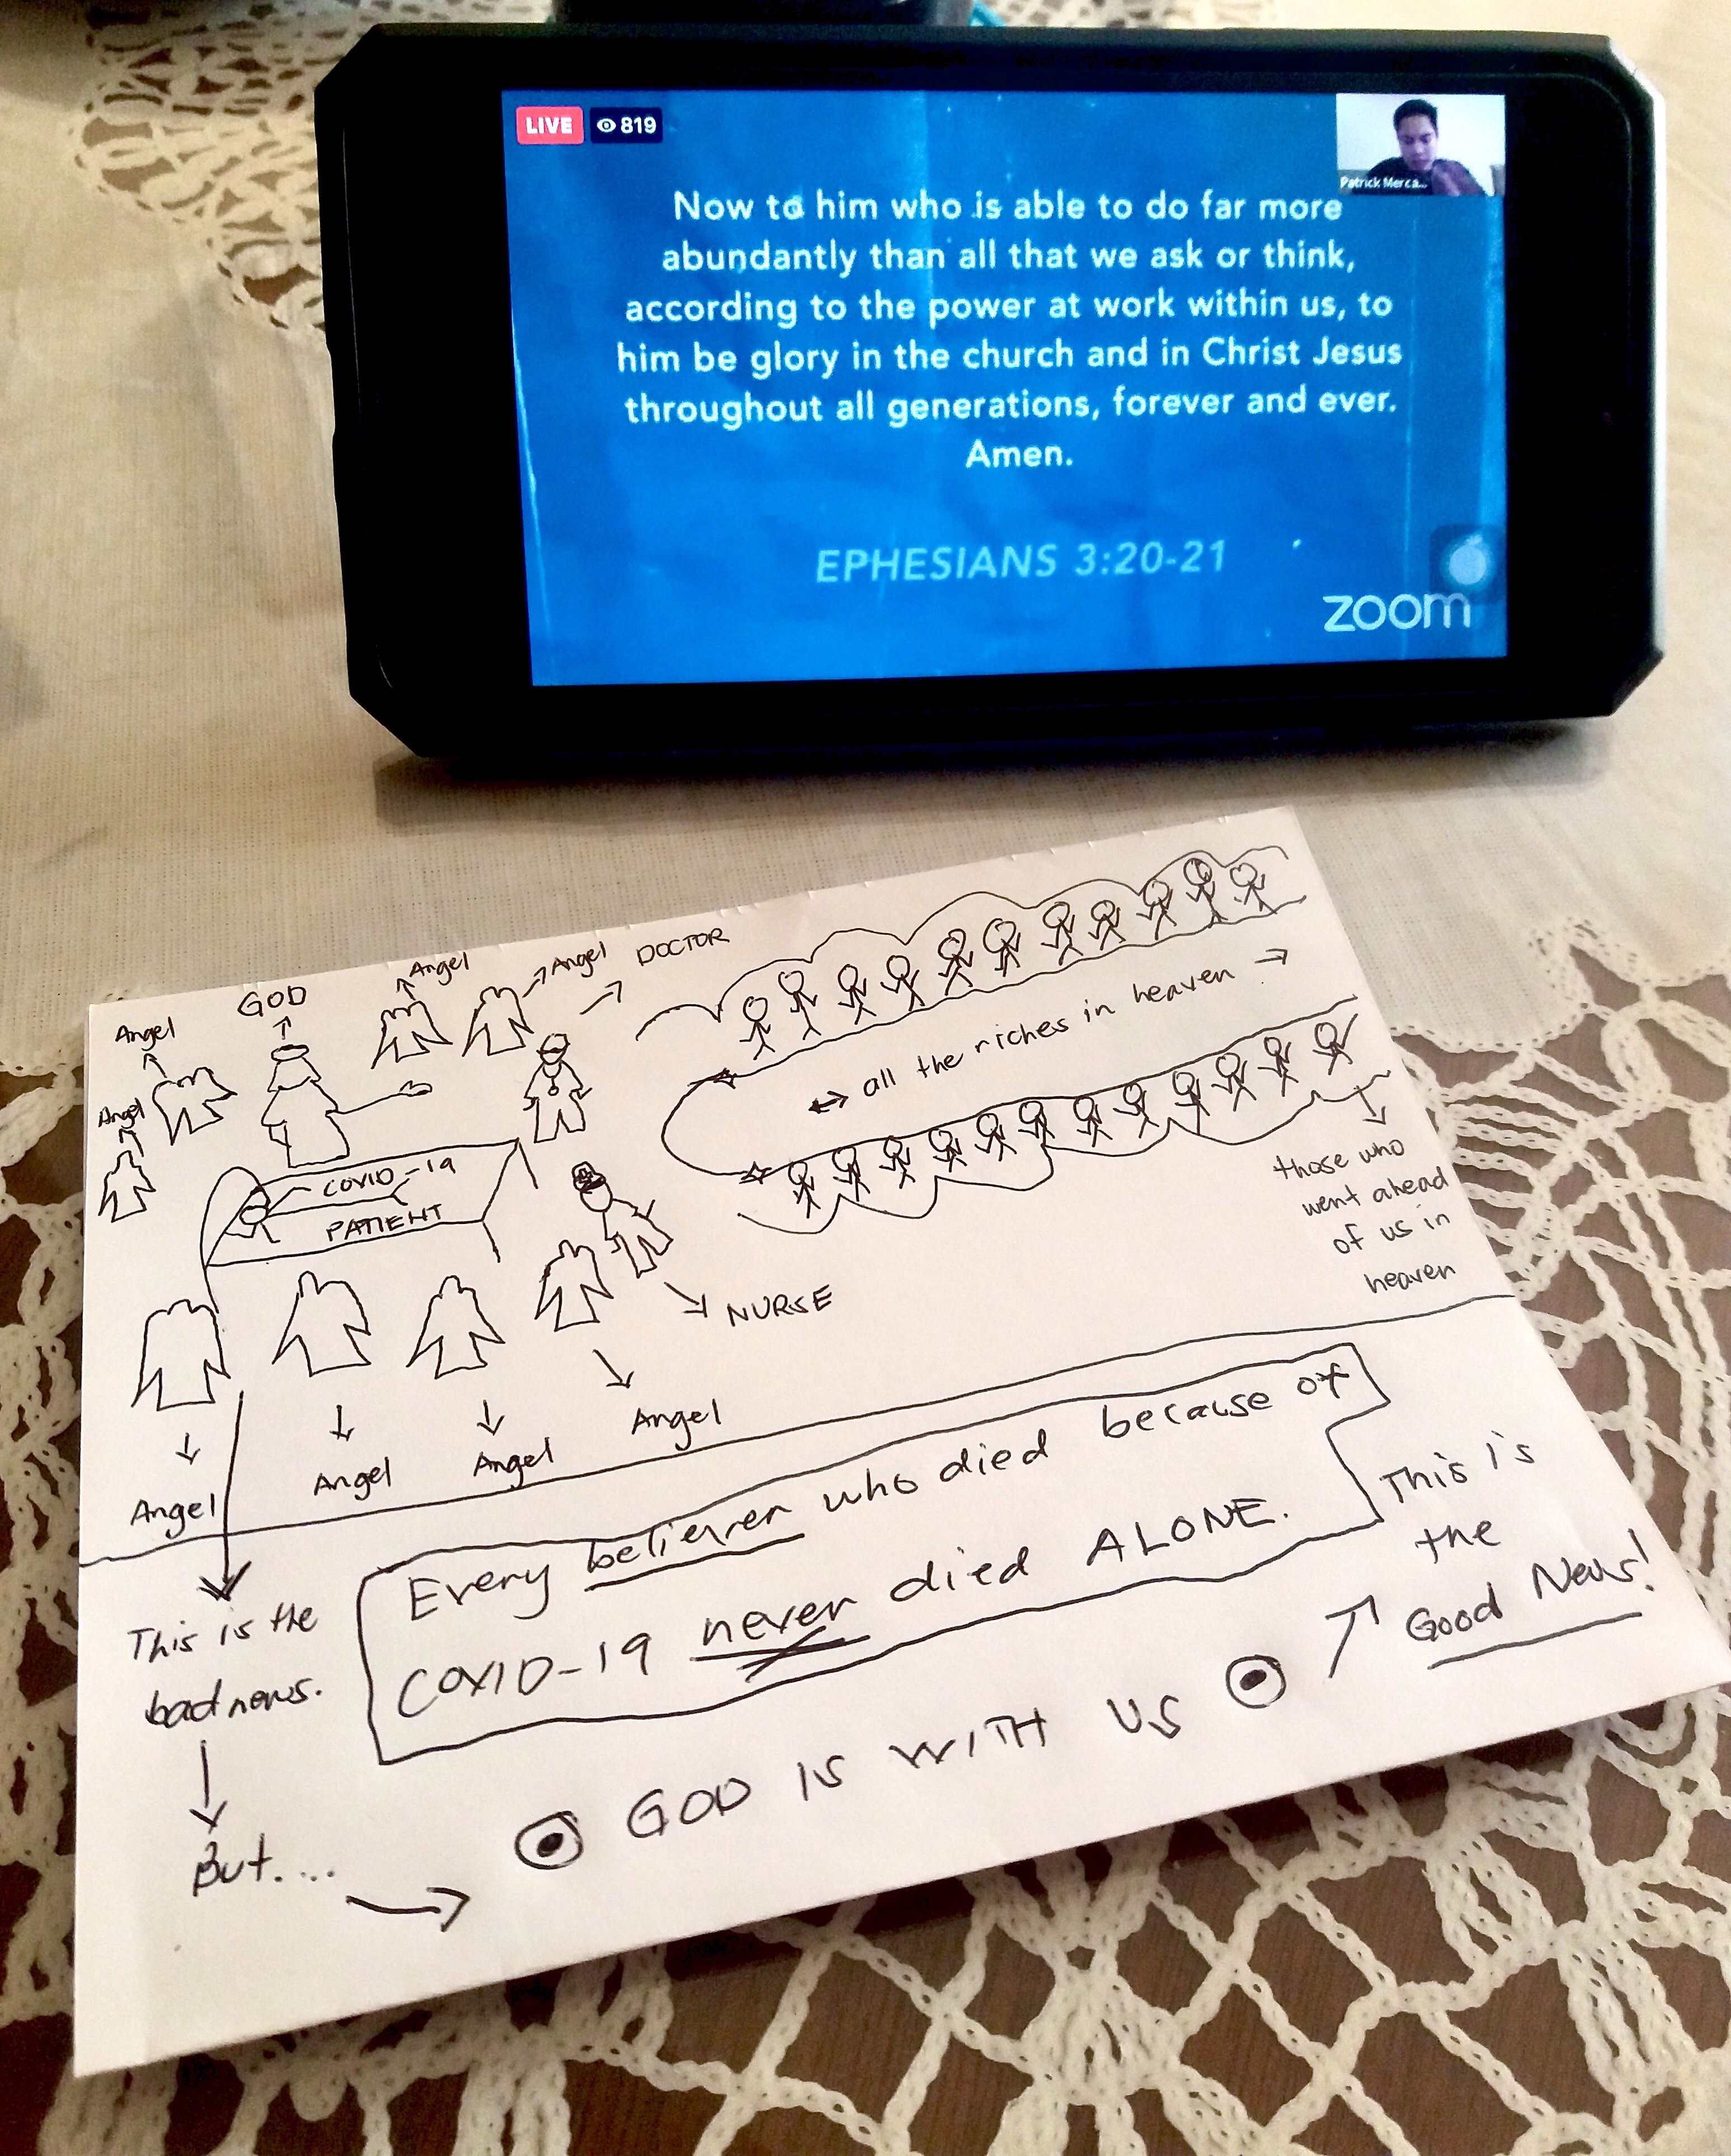 LIVE 819
Patrick Merca...
Now to him who is able to do far more
abundantly than all that we ask or think,
according to the power at work within us, to
him be glory in the church and in Christ Jesus
throughout all generations, forever and ever.
Amen.
EPHESIANS 3:20-21
zoom
Angel
GOD
Angel
Angel
DOCTOR
Angel
all the riches in heaven
COVID-19
PATIENT
those who
went ahead
of us in
heaven
NURSE
Angel
Angel
Angel
Angel
Every believer who died because of
COVID-19 never died ALONE.
This is the
bad news.
But....
GOD IS WITH US
This is
the
Good News!